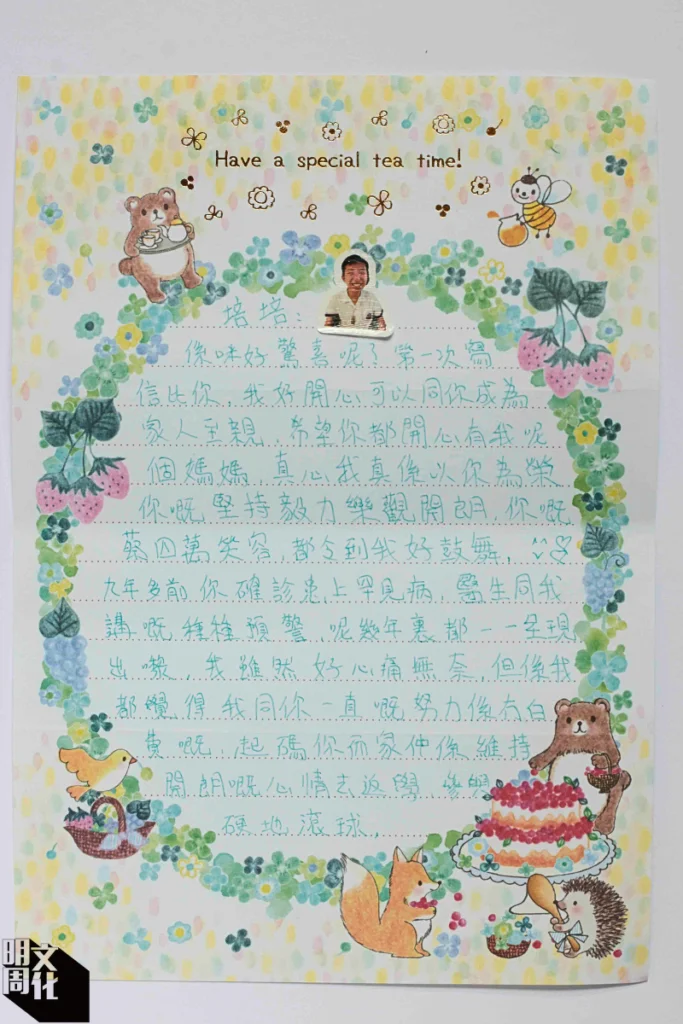 Have a special tea time!
培培:
係咪好驚喜呢?第一次寫
信比你,我好開心可以同你成為
家人至親,希望你都開心有我呢
個媽媽,真心我真係以你為榮
你嘅堅持毅力樂觀開朗,你嘅
蔡四萬笑容,都令到我好鼓舞,
九年多前你確診患上罕見病,醫生同我
講嘅種種預警,呢幾年裏都一一呈現
出嚟,我雖然好心痛無奈,但係我
都覺得我同你一直嘅努力係冇白
費嘅,起碼你而家仲係維持
開朗嘅心情去返學,參與
硬地滾球,
明周文化